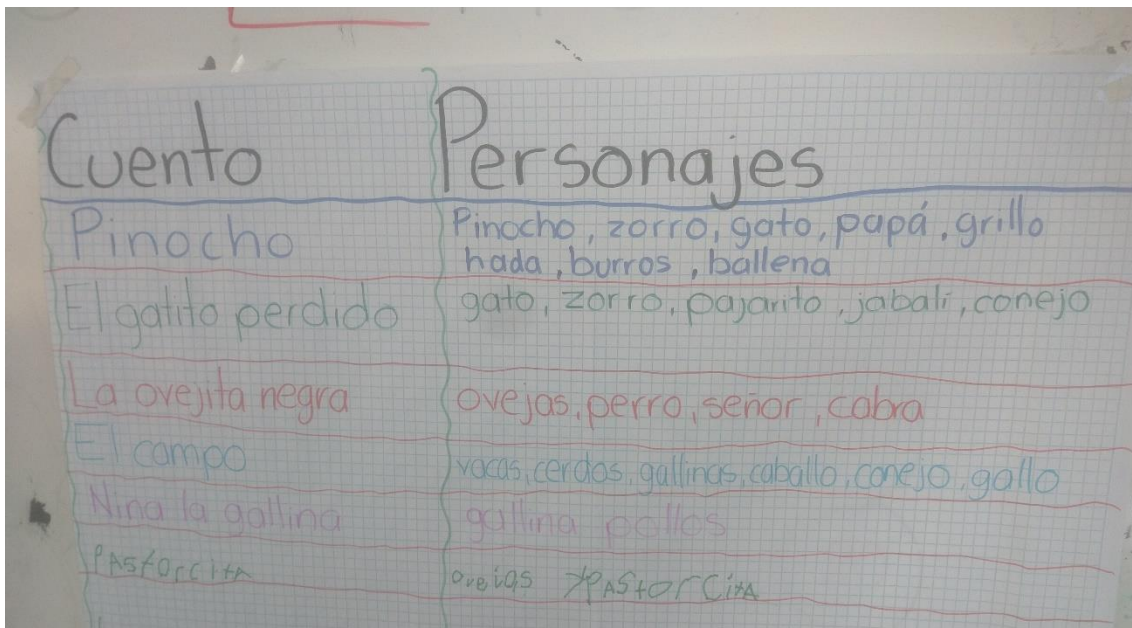 Cuento Personajes
Pinocho Pinocho, zorro, gato, papá, grillo
hada, burros, ballena
El gatito perdido gato, zorro, pajarito, jabali, conejo
La ovejita negra ovejas, perro, señor, cabra
El campo vacas, cerdos, gallinas, caballo, conejo, gallo
Nina la gallina gallina pollos
PAstorcitA ovejas y PAStorCitA